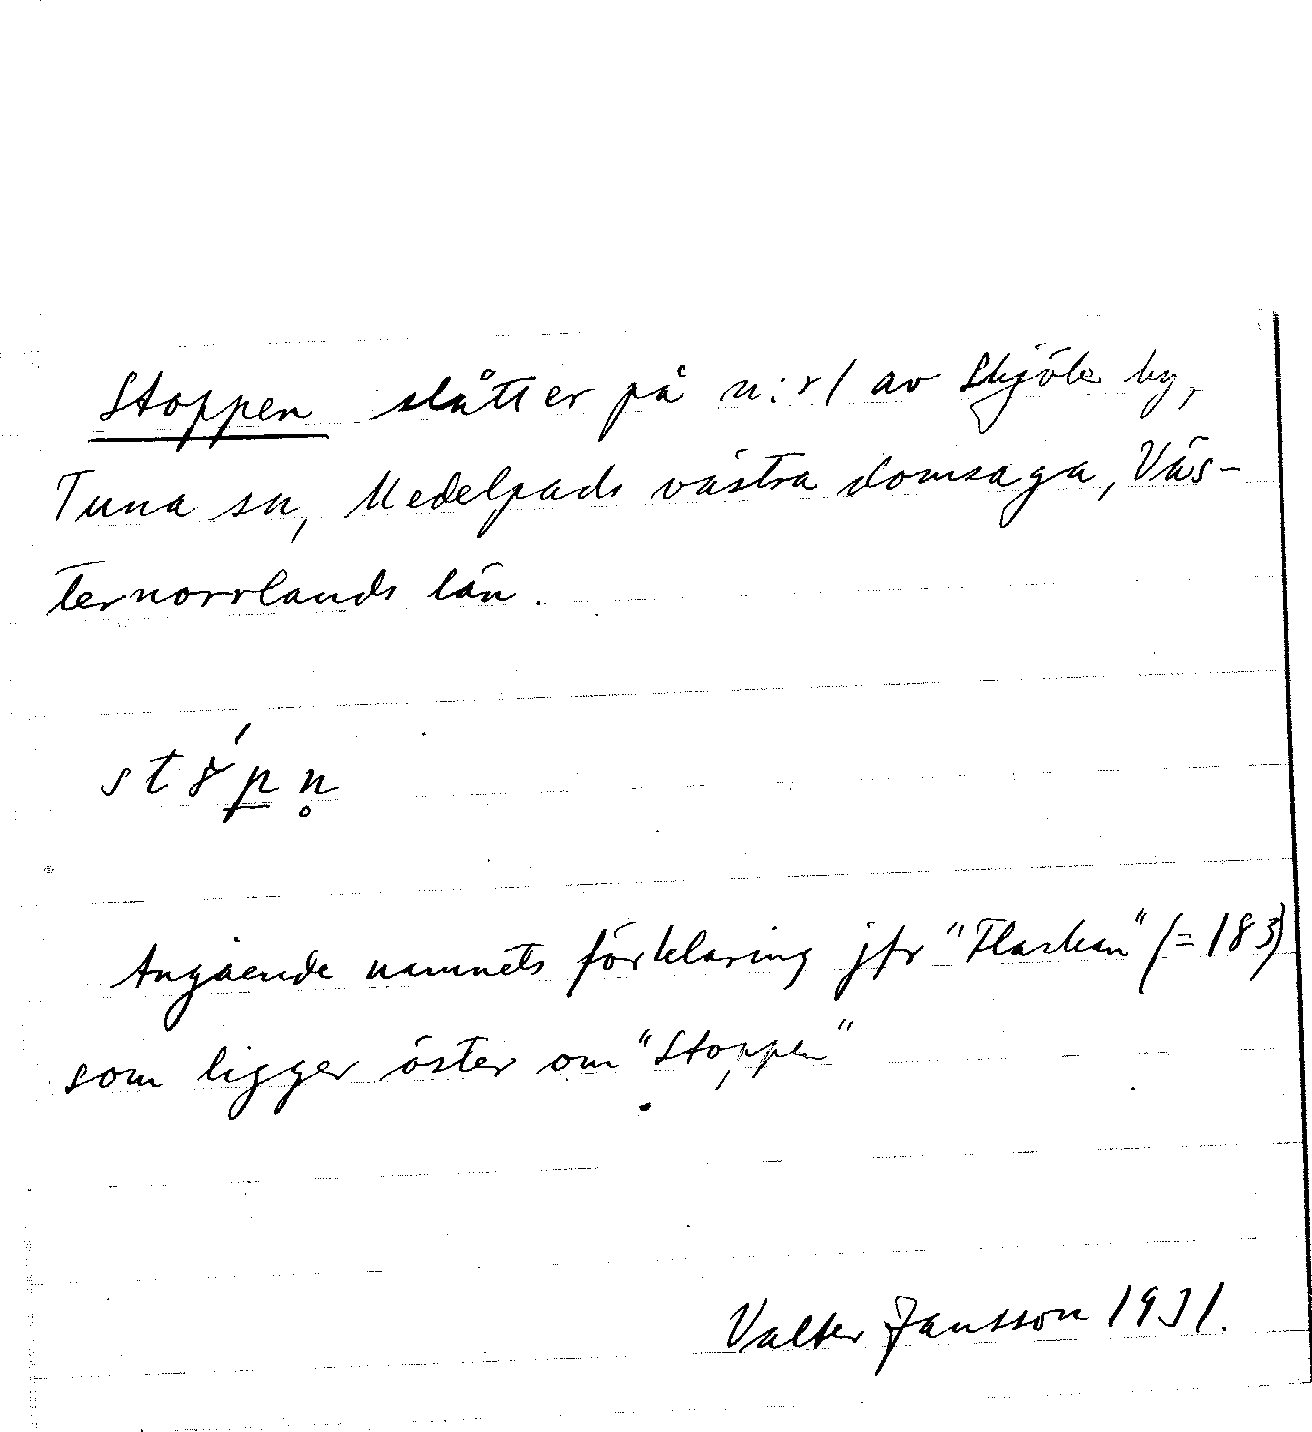 Stoppen slåtter på n:r 1 av Skjöle by,
Tuna sn, Medelpads västra domsaga, Väs-
ternorrlands län.
Angående namnets förklaring jfr "Flaskan" (=183)
som ligger öster om "Stoppen"
Valter Jansson 1931.